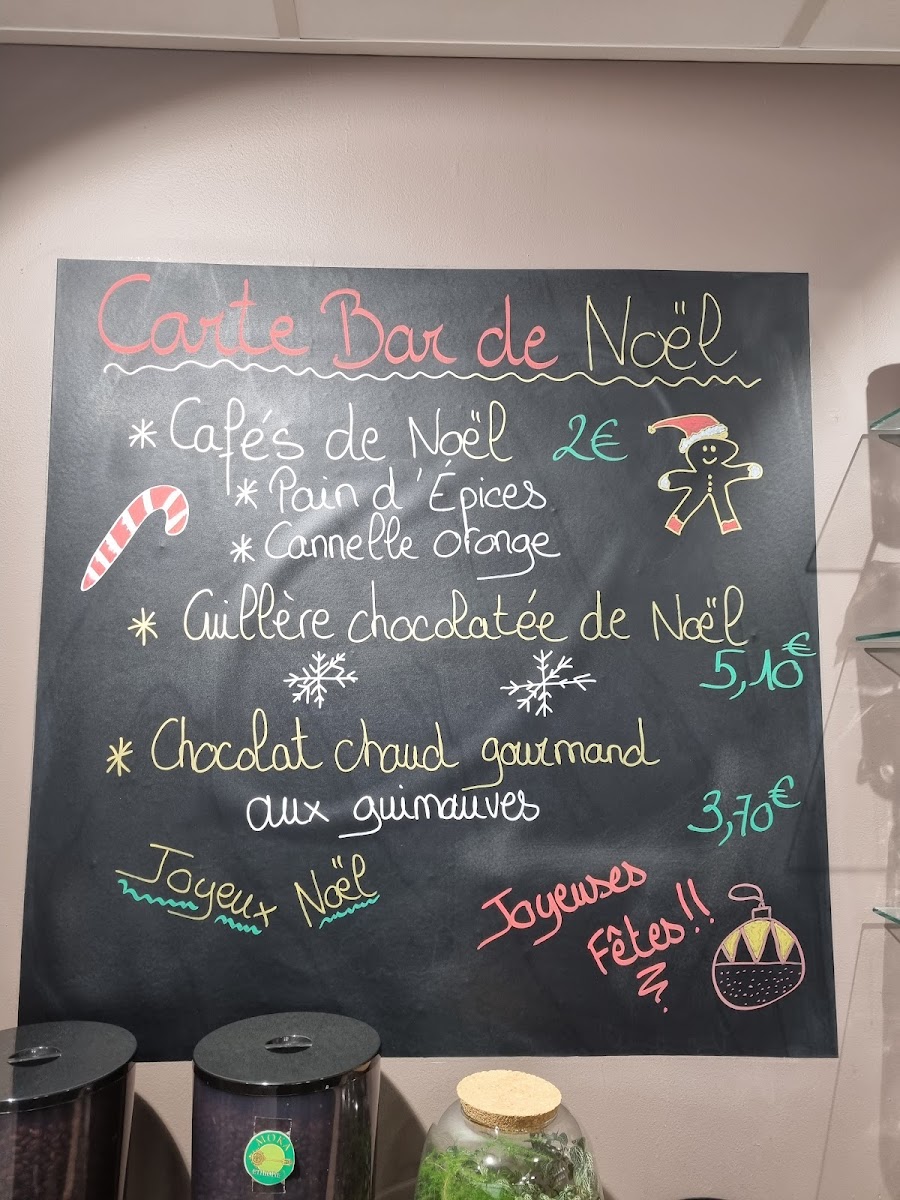 Carte Bar de Noël
* Cafés de Noël 2€
* Pain d'Épices
* Cannelle orange
* Cuillère chocolatée de Noël
5,10€
* Chocolat chaud gourmand
aux guimauves
3,70€
Joyeux Noël
Joyeuses
Fêtes!!
MOKA